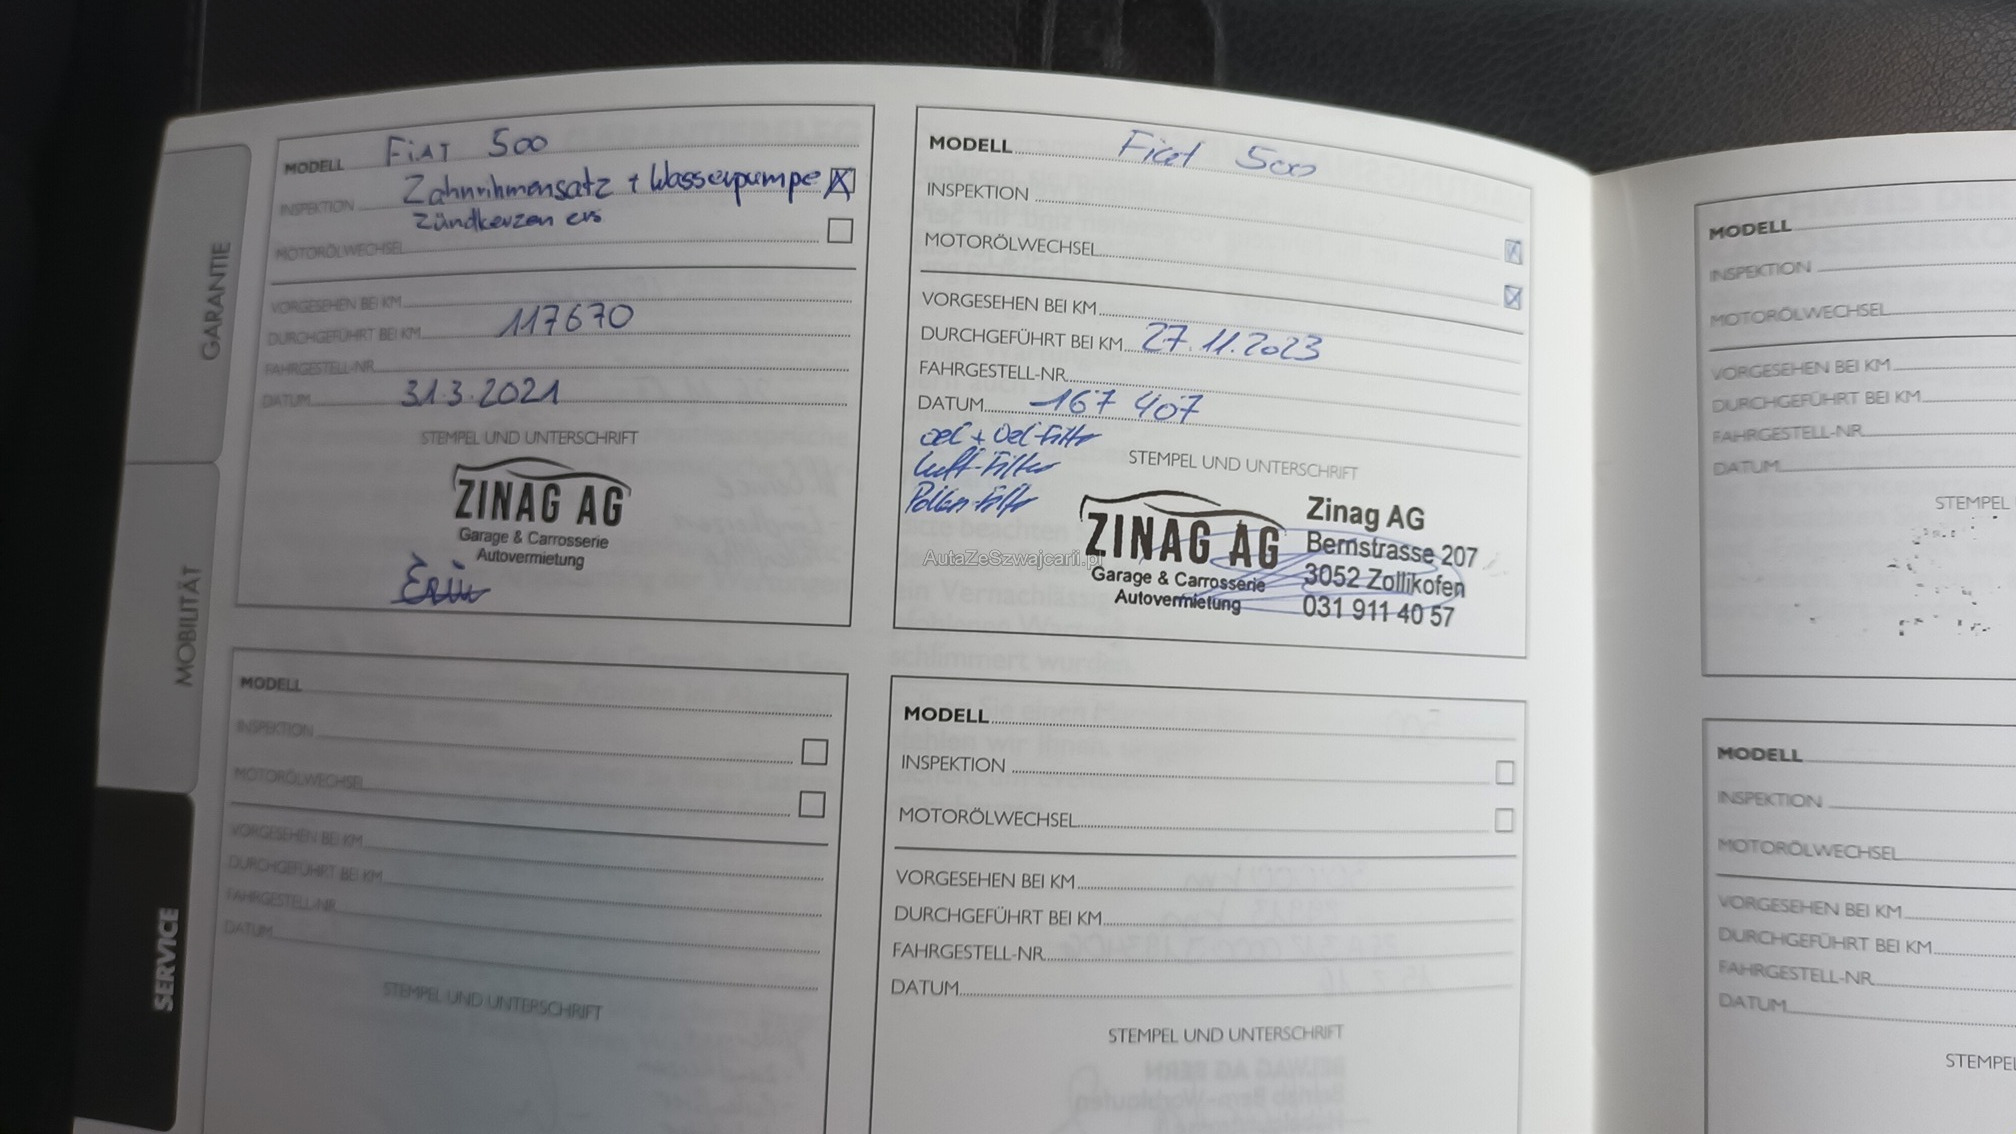 GARANTIE
MOBILITÄT
SERVICE
MODELL FiAT 500
Zahnrihmensatz + Wasserpumpe
INSPEKTION
Zündkerzen ers
MOTORÖLWECHSEL
VORGESEHEN BEI KM
DURCHGEFÜHRT BEI KM 117670
FAHRGESTELL-NR.
DATUM 31.3.2021
STEMPEL UND UNTERSCHRIFT
ZINAG AG
Garage & Carrosserie
Autovermietung
MODELL Fiat 500
INSPEKTION
MOTORÖLWECHSEL
VORGESEHEN BEI KM
DURCHGEFÜHRT BEI KM 27.11.2023
FAHRGESTELL-NR.
DATUM 167 407
oel + Oel-Filter
Luft-Filter
Pollen-Filter
STEMPEL UND UNTERSCHRIFT
ZINAG AG
Garage & Carrosserie
Autovermietung
Zinag AG
Bernstrasse 207
3052 Zollikofen
031 911 40 57
AutaZeSzwajcarii.pl
MODELL
INSPEKTION
MOTORÖLWECHSEL
VORGESEHEN BEI KM
DURCHGEFÜHRT BEI KM
FAHRGESTELL-NR.
DATUM
STEMPEL UND UNTERSCHRIFT
MODELL
INSPEKTION
MOTORÖLWECHSEL
VORGESEHEN BEI KM
DURCHGEFÜHRT BEI KM
FAHRGESTELL-NR.
DATUM
STEMPEL UND UNTERSCHRIFT
MODELL
INSPEKTION
MOTORÖLWECHSEL
VORGESEHEN BEI KM
DURCHGEFÜHRT BEI KM
FAHRGESTELL-NR.
DATUM
STEMPEL
MODELL
INSPEKTION
MOTORÖLWECHSEL
VORGESEHEN BEI KM
DURCHGEFÜHRT BEI KM
FAHRGESTELL-NR.
DATUM
STEMPEL